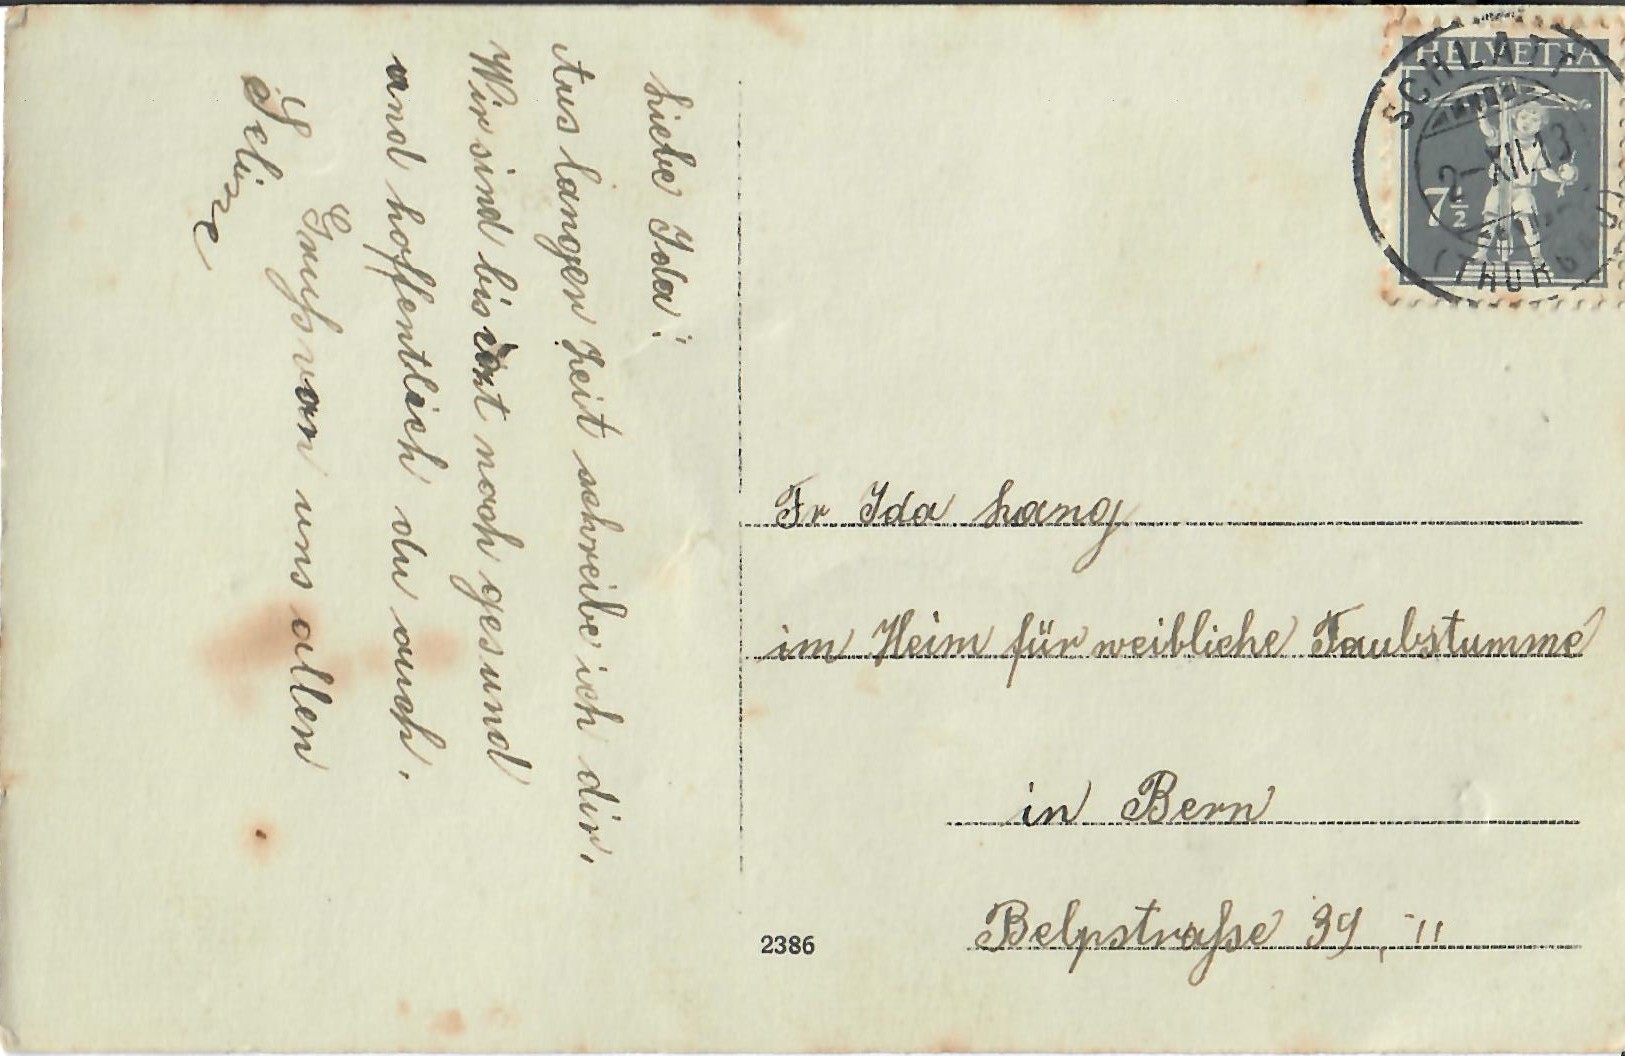 Liebe Ida!
Aus langer Zeit schreibe ich dir.
Wir sind bis noch gesund
und hoffentlich du auch.
Gruss von uns allen
HELVETIA
7½
SCHLATT
2-XII.13
(THURGAU)
Fr Ida Lang
im Heim für weibliche Taubstumme
in Bern
Belpstraße 39, II
2386